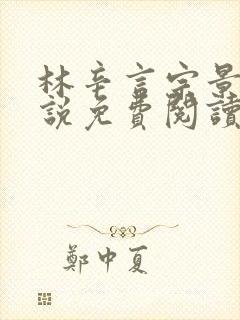 林辛言宗景
説免費閱讀
鄭中夏